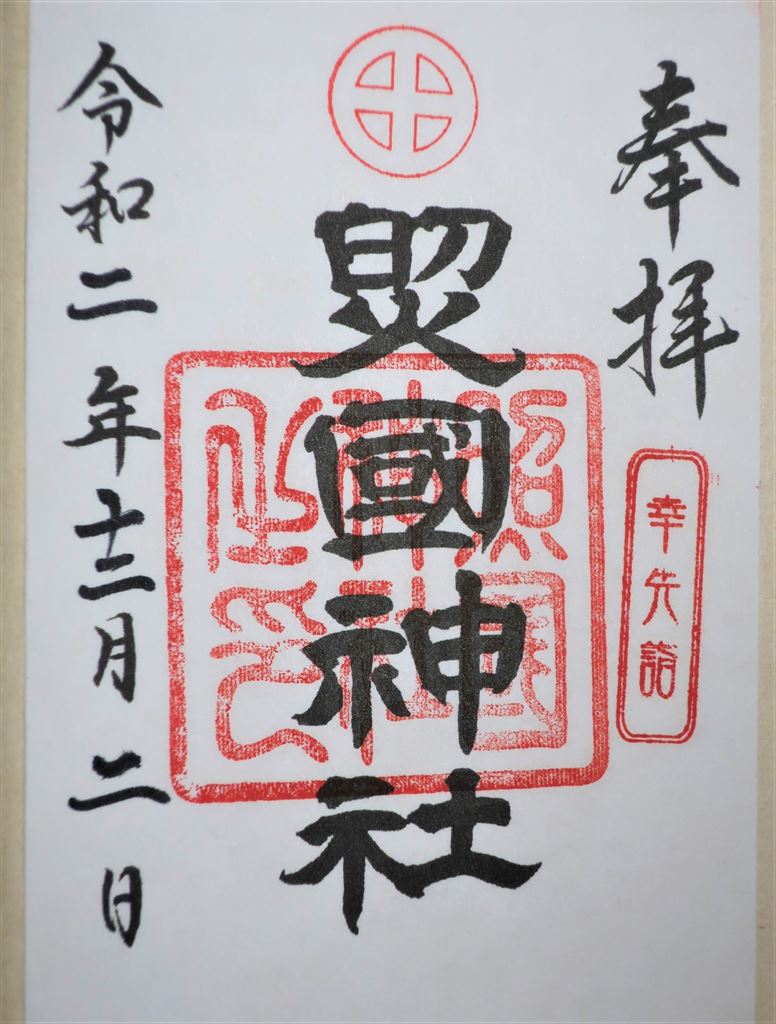 奉拝
幸先詣
照國神社
照國神社之印
令和二年十二月二日